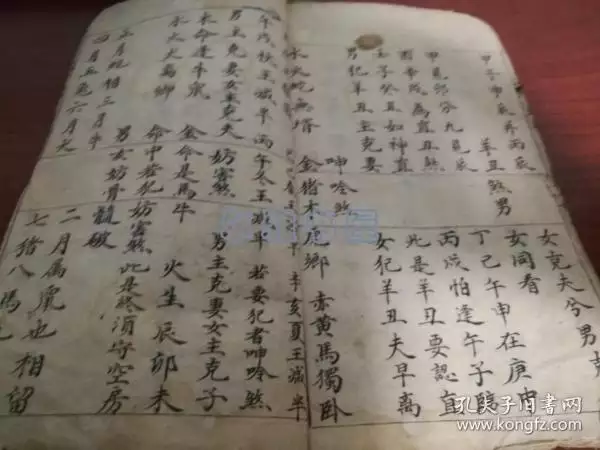 甲子申辰并丙辰
羊丑煞男
女克夫兮男
甲見卯分九見辰
女同看
酉辛戌為直丑煞
丁己午申在庚申
壬子癸丑如神直
丙戌怕逢午子
男犯羊丑主克妻
此是羊丑要認直
女犯羊丑夫早离
呻吟煞
水火蛇無壻 金猪木虎鄉 赤黄馬獨卧
辛亥夏王滅半
午戌秋王滅半 丙午冬王滅半 若妻犯者呻吟煞
男主克妻女主克夫 妨害煞 男主克妻女主克子
木命逢牛鼠 金命是馬牛 火生辰卯未
水火火馬鄉 命中若犯妨害煞 此是終須守空房
男女妨骨髓破
正月蛇相三月牛 二月為鼠也相留
四月五兔六月犬 七猪八馬
孔夫子旧书网
www.kongfz.com